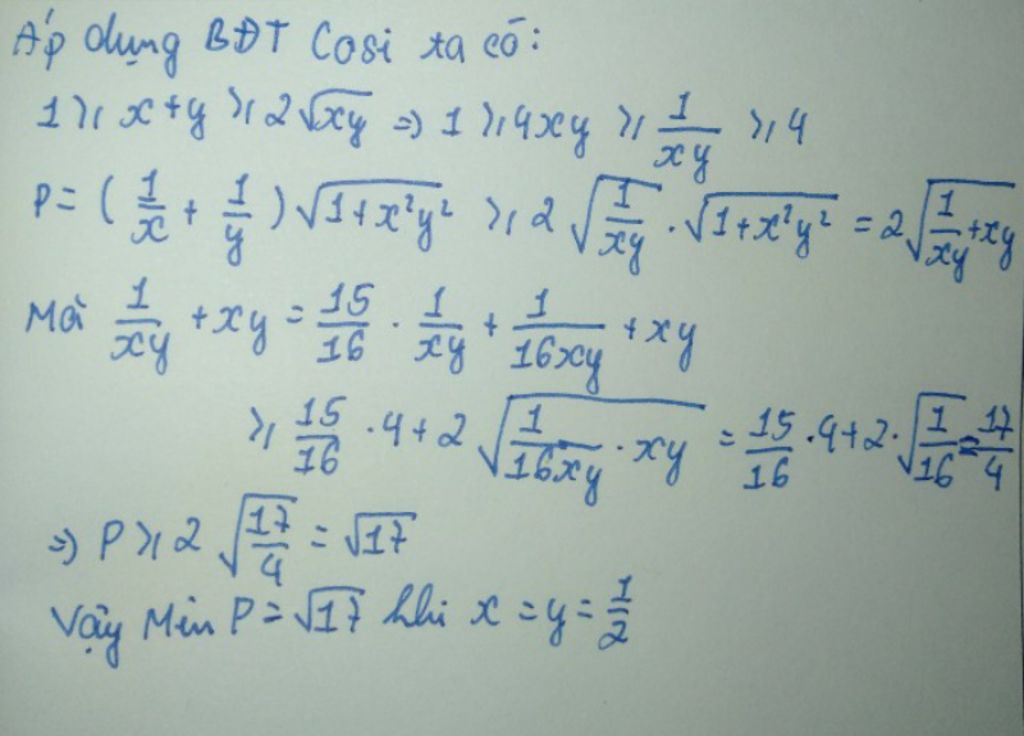 Áp dụng BĐT Cosi ta có:
1 ⩾ x+y ⩾ 2√(xy) => 1 ⩾ 4xy ⩾ 1/(xy) ⩾ 4
P = (1/x + 1/y)√(1+x²y²) ⩾ 2√(1/(xy)) . √(1+x²y²) = 2√(1/(xy) + xy)
Mà 1/(xy) + xy = 15/16 . 1/(xy) + 1/(16xy) + xy
⩾ 15/16 . 4 + 2√(1/(16xy) . xy) = 15/16 . 4 + 2.√(1/16) = 17/4
=> P ⩾ 2√(17/4) = √17
Vậy Min P = √17 khi x = y = 1/2